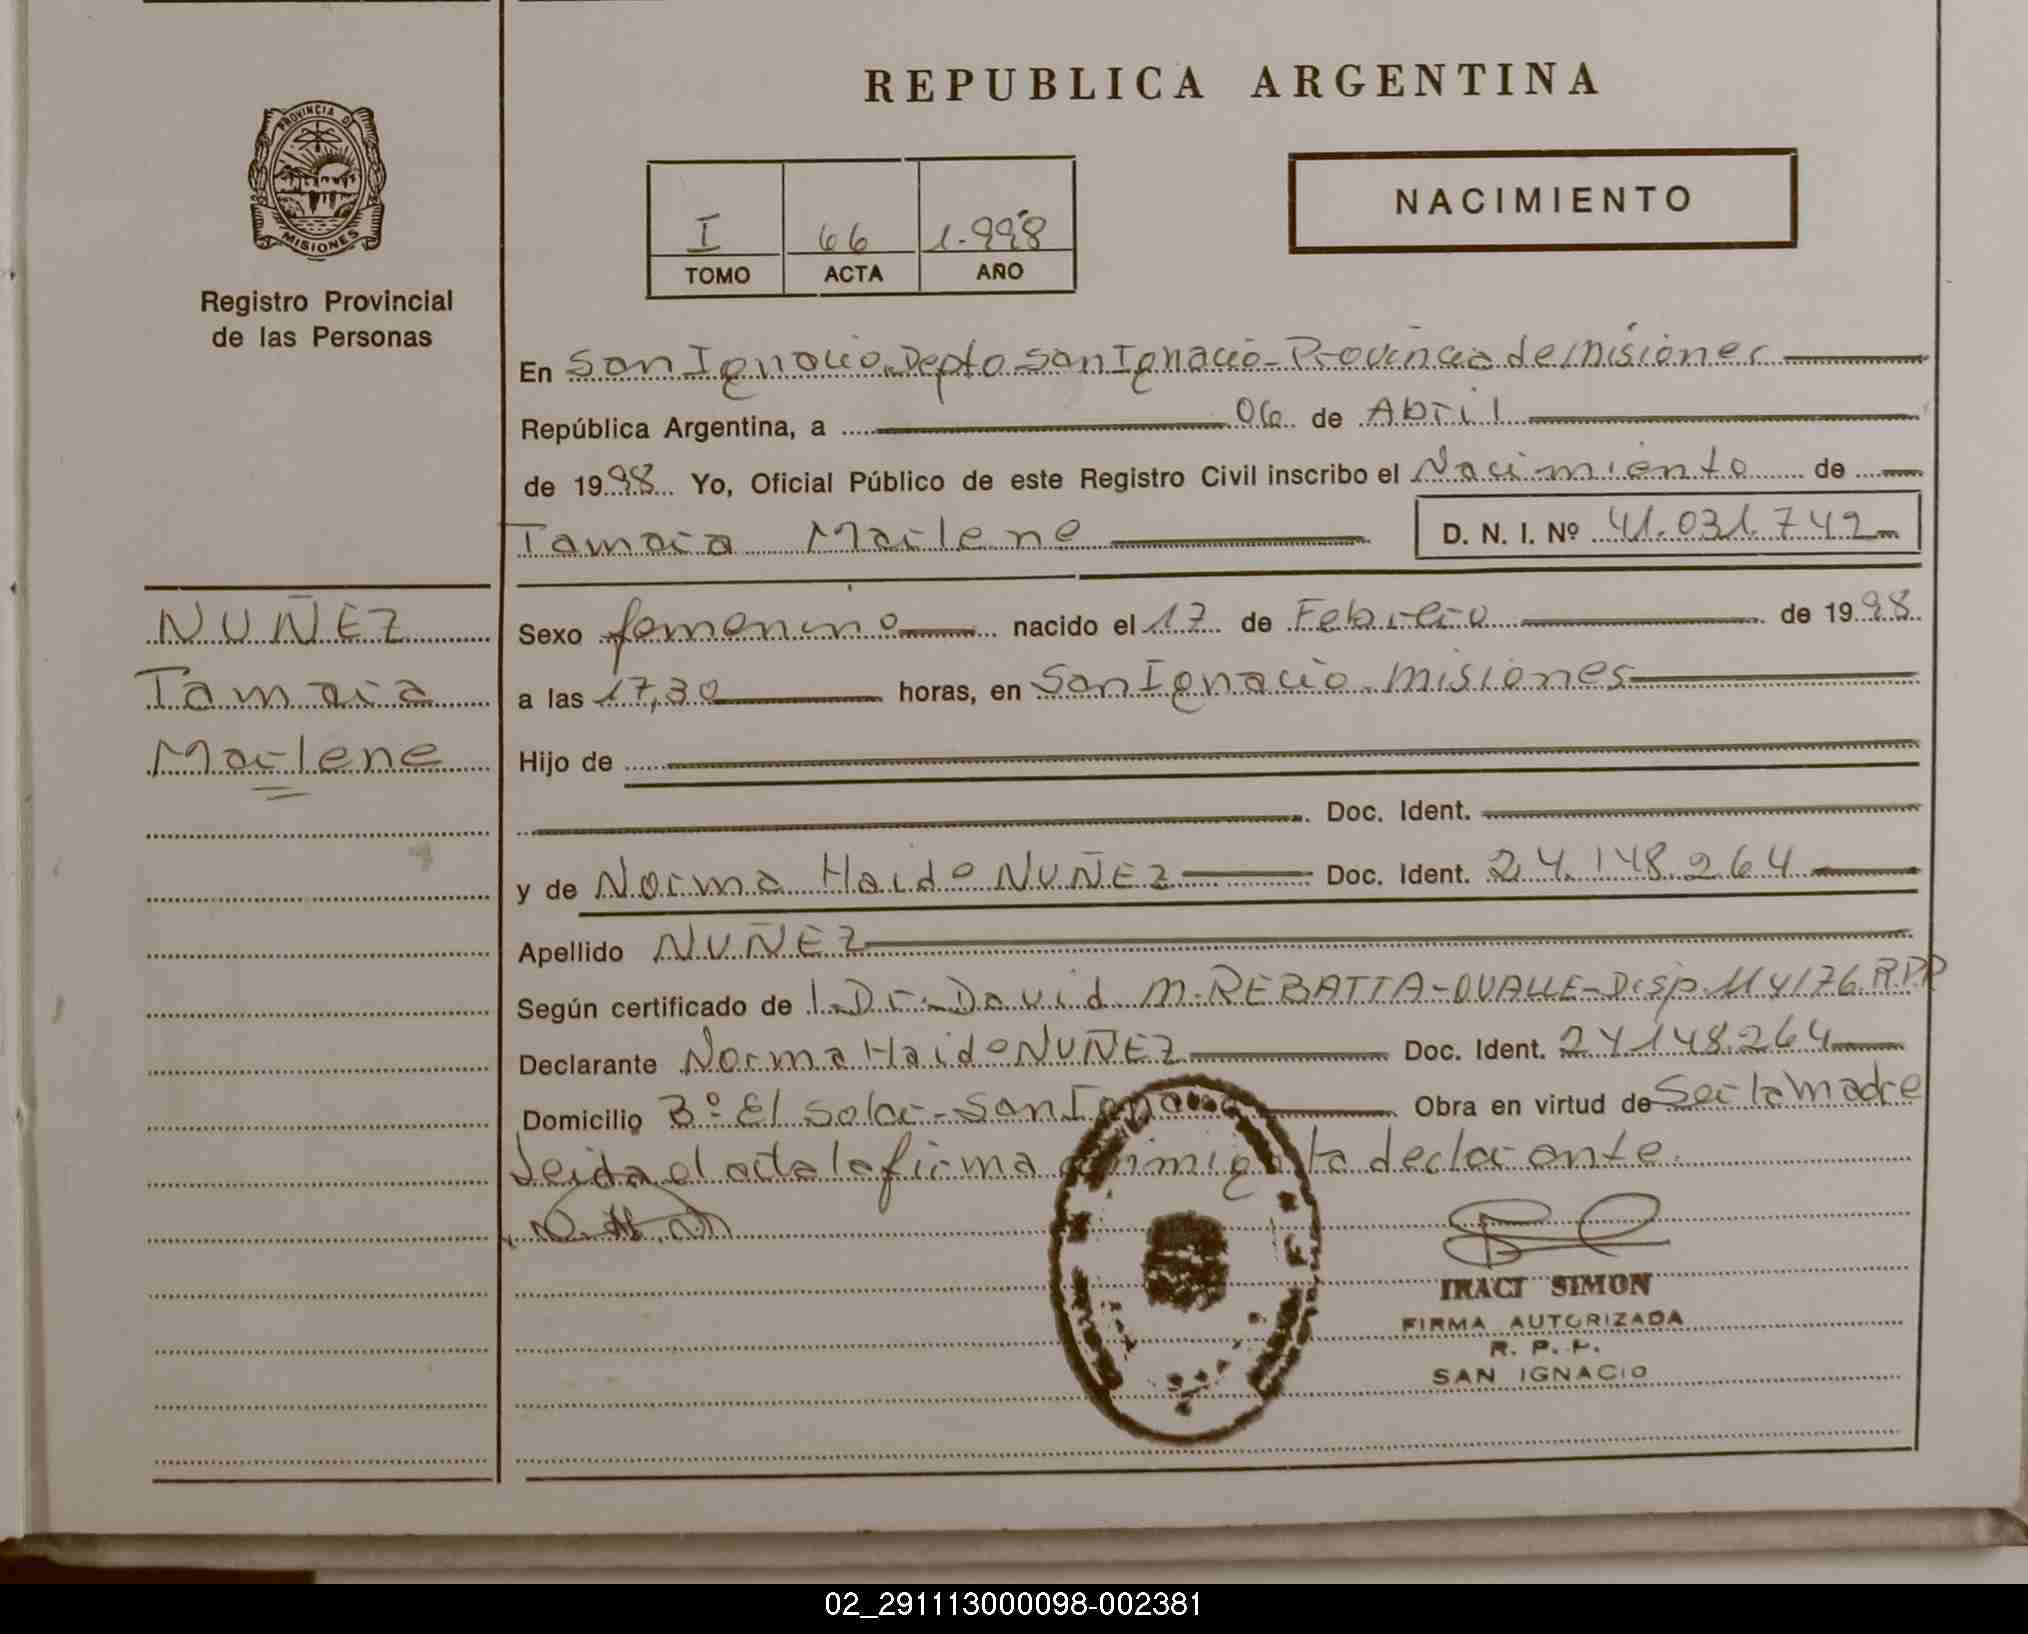 REPUBLICA ARGENTINA
PROVINCIA DE
MISIONES
Registro Provincial
de las Personas
I 66 1.998
TOMO ACTA AÑO
NACIMIENTO
En San Ignacio, Depto San Ignacio - Provincia de Misiones
República Argentina, a 06 de Abril
de 1998 Yo, Oficial Público de este Registro Civil inscribo el Nacimiento de
Tamara Marlene D. N. I. Nº 41.031.742
NUÑEZ
Tamara
Marlene
Sexo femenino nacido el 17 de Febrero de 1998
a las 17,30 horas, en San Ignacio - Misiones
Hijo de
Doc. Ident.
y de Norma Haide NUÑEZ Doc. Ident. 24.148.264
Apellido NUÑEZ
Según certificado de 1. Dr. David M. REBATTA-OVALLE-Disp. 114/76. R.P.P
Declarante Norma Haide NUÑEZ Doc. Ident. 24148.264
Domicilio Bº El Solar - San Obra en virtud de Ser la Madre
Leida el acta la firma la declarante.
IRACI SIMON
FIRMA AUTORIZADA
R. P. P.
SAN IGNACIO
02_291113000098-002381